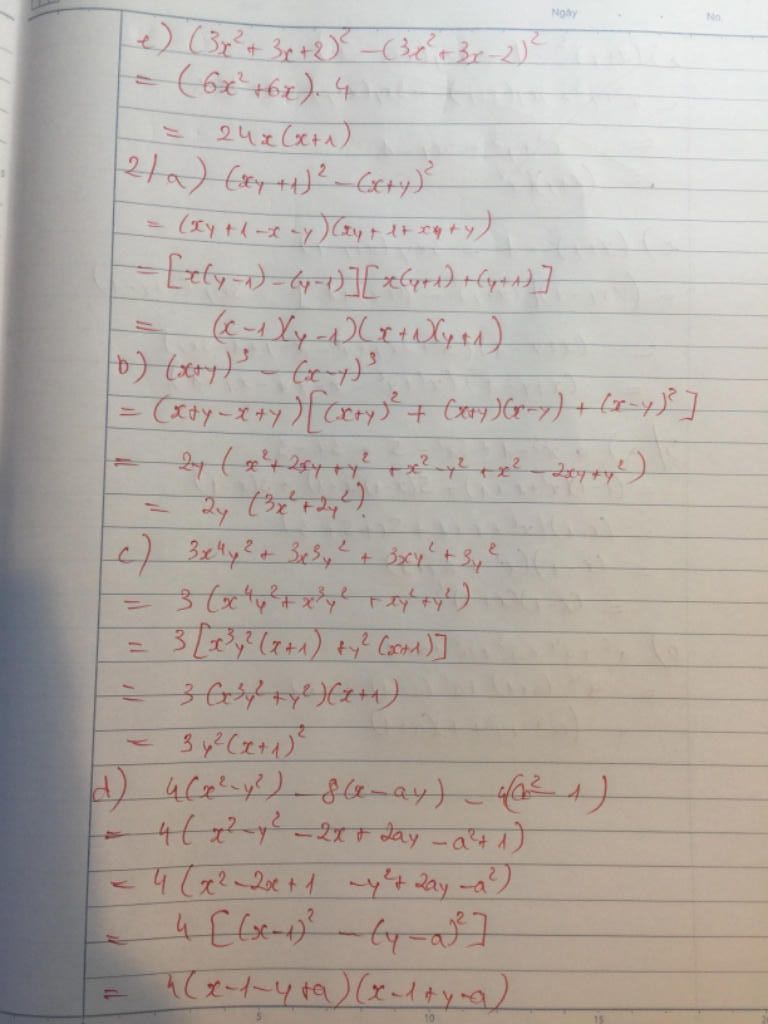 Ngày No.
e) (3x² + 3x + 2)² - (3x² + 3x - 2)²
= (6x² + 6x). 4
= 24x(x+1)
2/ a) (xy + 1)² - (x+y)²
= (xy + 1 - x - y)(xy + 1 + x + y)
= [x(y-1) - (y-1)][x(y+1) + (y+1)]
= (x-1)(y-1)(x+1)(y+1)
b) (x+y)³ - (x-y)³
= (x+y-x+y)[(x+y)² + (x+y)(x-y) + (x-y)²]
= 2y (x² + 2xy + y² + x² - y² + x² - 2xy + y²)
= 2y (3x² + 2y²).
c) 3x⁴y² + 3x³y² + 3xy² + 3y²
= 3 (x⁴y² + x³y² + xy² + y²)
= 3 [x³y²(x+1) + y²(x+1)]
= 3 (x³y² + y²)(x+1)
= 3y²(x+1)²
d) 4(x² - y²) - 8(x - ay) - 4(a² - 1)
= 4( x² - y² - 2x + 2ay - a² + 1)
= 4 (x² - 2x + 1 - y² + 2ay - a²)
= 4 [(x-1)² - (y-a)²]
= 4(x-1-y+a)(x-1+y-a)
5 10 15